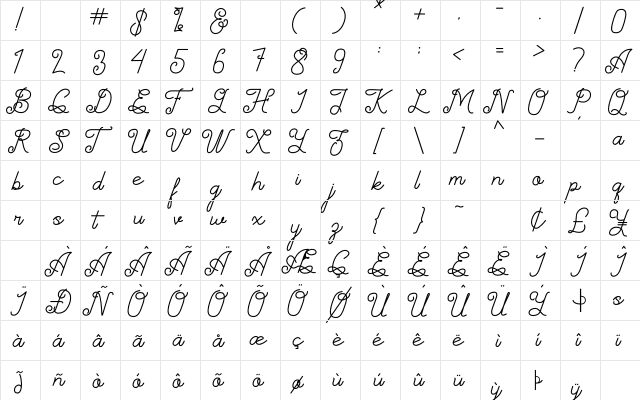 ! # $ % & ( ) * + , - . / 0
1 2 3 4 5 6 7 8 9 : ; < = > ? A
B C D E F G H I J K L M N O P Q
R S T U V W X Y Z [ \ ] ^ _ a
b c d e f g h i j k l m n o p q
r s t u v w x y z { } ~ ¢ £ ¥
À Á Â Ã Ä Å Æ Ç È É Ê Ë Ì Í Î
Ï Ð Ñ Ò Ó Ô Õ Ö Ø Ù Ú Û Ü Ý Þ s
à á â ã ä å æ ç è é ê ë ì í î ï
ñ ò ó ô õ ö ø ù ú û ü ý þ ÿ